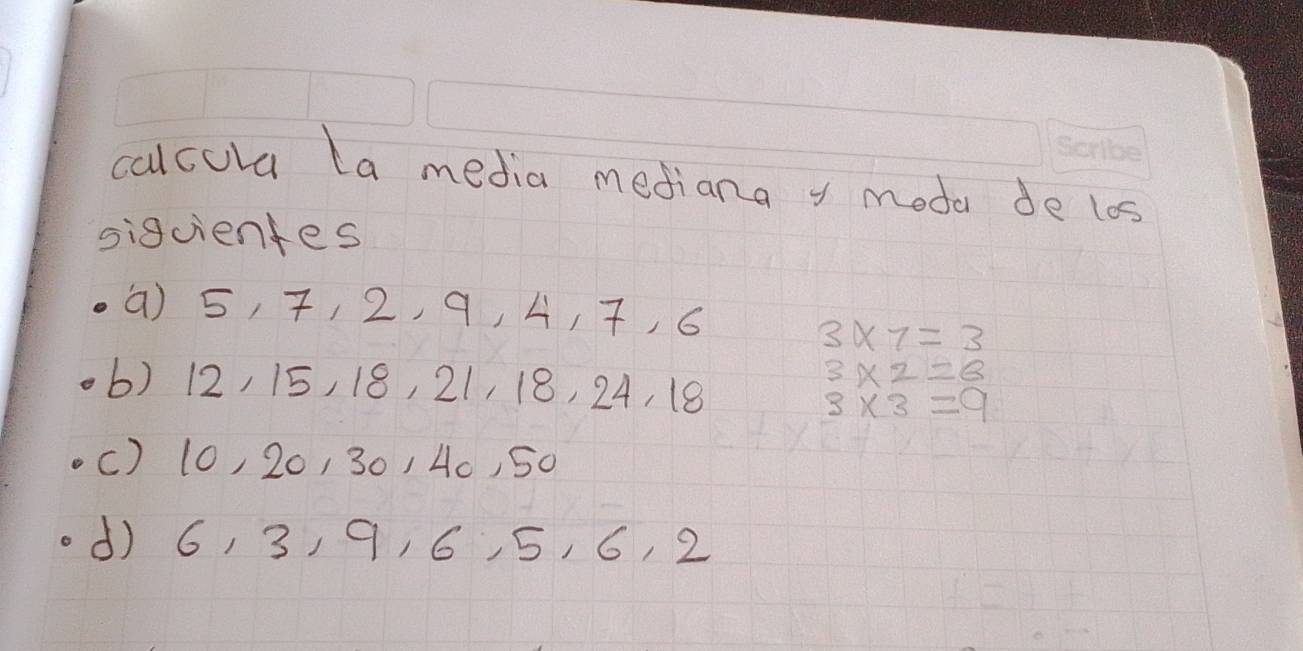 Scribe
calcula la media mediana y moda de los
siguientes
• a) 5, 7, 2, 9, 4, 7, 6
• b) 12, 15, 18, 21, 18, 24, 18
• c) 10, 20, 30, 40, 50
• d) 6, 3, 9, 6, 5, 6, 2
3 x 1 = 3
3 x 2 = 6
3 x 3 = 9